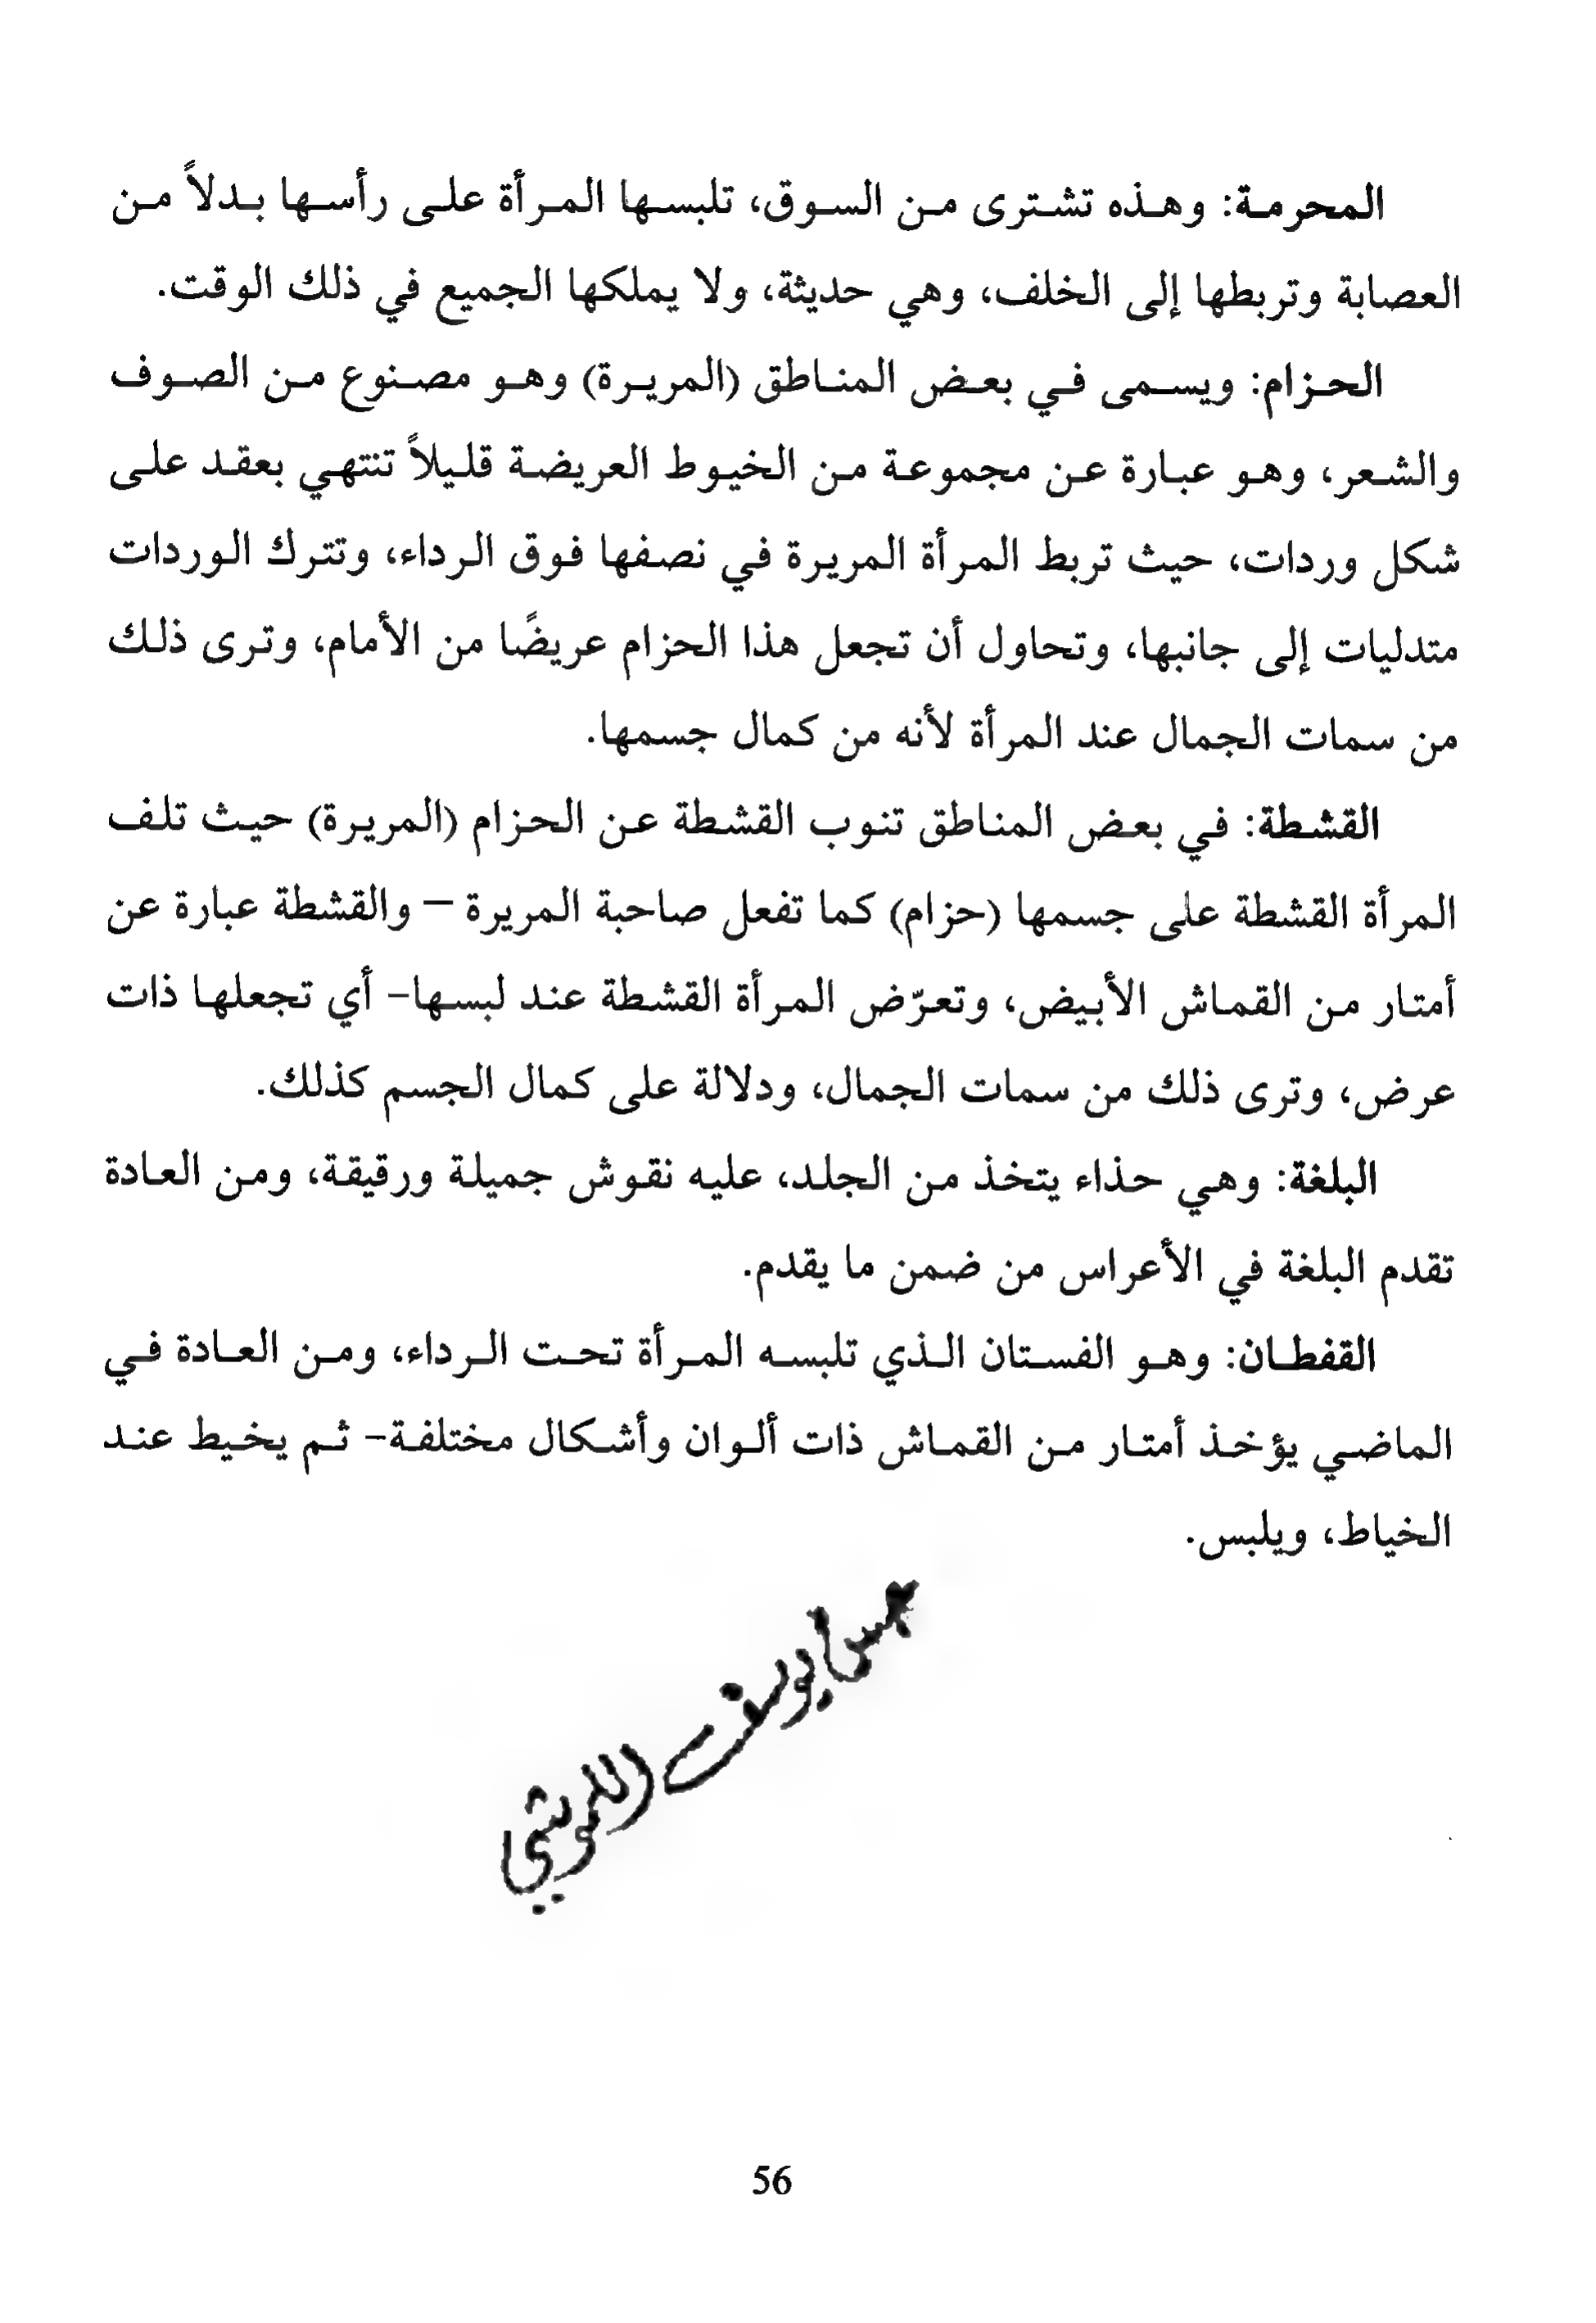 المحرمة: وهذه تشترى من السوق، تلبسها المرأة على رأسها بدلاً من
العصابة وتربطها إلى الخلف، وهي حديثة، ولا يملكها الجميع في ذلك الوقت.
الحزام: ويسمى في بعض المناطق (المريرة) وهو مصنوع من الصوف
والشعر، وهو عبارة عن مجموعة من الخيوط العريضة قليلاً تنتهي بعقد على
شكل وردات، حيث تربط المرأة المريرة في نصفها فوق الرداء، وتترك الوردات
متدليات إلى جانبها، وتحاول أن تجعل هذا الحزام عريضًا من الأمام، وترى ذلك
من سمات الجمال عند المرأة لأنه من كمال جسمها.
القشطة: في بعض المناطق تنوب القشطة عن الحزام (المريرة) حيث تلف
المرأة القشطة على جسمها (حزام) كما تفعل صاحبة المريرة – والقشطة عبارة عن
أمتار من القماش الأبيض، وتعرّض المرأة القشطة عند لبسها- أي تجعلها ذات
عرض، وترى ذلك من سمات الجمال، ودلالة على كمال الجسم كذلك.
البلغة: وهي حذاء يتخذ من الجلد، عليه نقوش جميلة ورقيقة، ومن العادة
تقدم البلغة في الأعراس من ضمن ما يقدم.
القفطان: وهو الفستان الذي تلبسه المرأة تحت الرداء، ومن العادة في
الماضي يؤخذ أمتار من القماش ذات ألوان وأشكال مختلفة- ثم يخيط عند
الخياط، ويلبس.
يوسف
56